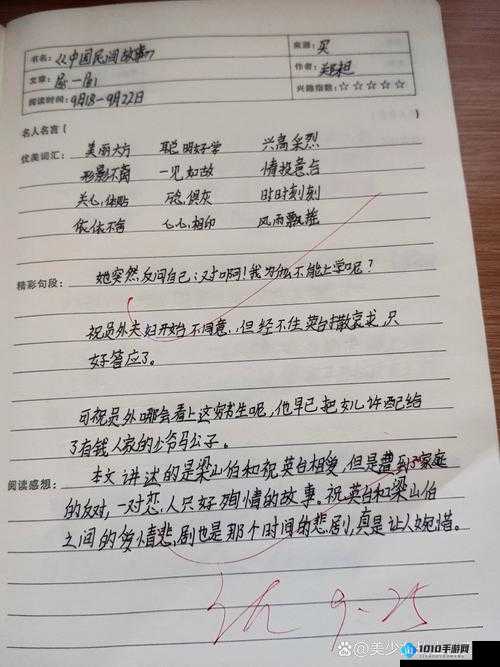 书名：《中国民间故事》
来源：买
文章：
作者：
阅读时间：9月18-9月22日
兴趣指数：☆☆☆☆☆
名人名言（
优美词汇： 美丽大方 聪明好学 兴高采烈
形影不离 一见如故 情投意合
关心体贴 时时刻刻
依依不舍 心心相印 风雨飘摇
精彩句段： 她突然反问自己：对啊！我为什么不能上学呢？
祝员外夫妇开始不同意，但经不住英台撒哀求，只
好答应了。
可祝员外哪会看上这穷书生呢，他早已把女儿许配给
了有钱人家的少爷马公子。
阅读感想： 本文讲述的是梁山伯和祝英台相爱，但是遭到了家庭
的反对，一对恋人只好殉情的故事。祝英台和梁山伯
之间的爱情悲剧也是那个时间的悲剧，真是让人惋惜。
9-25
1010手游网